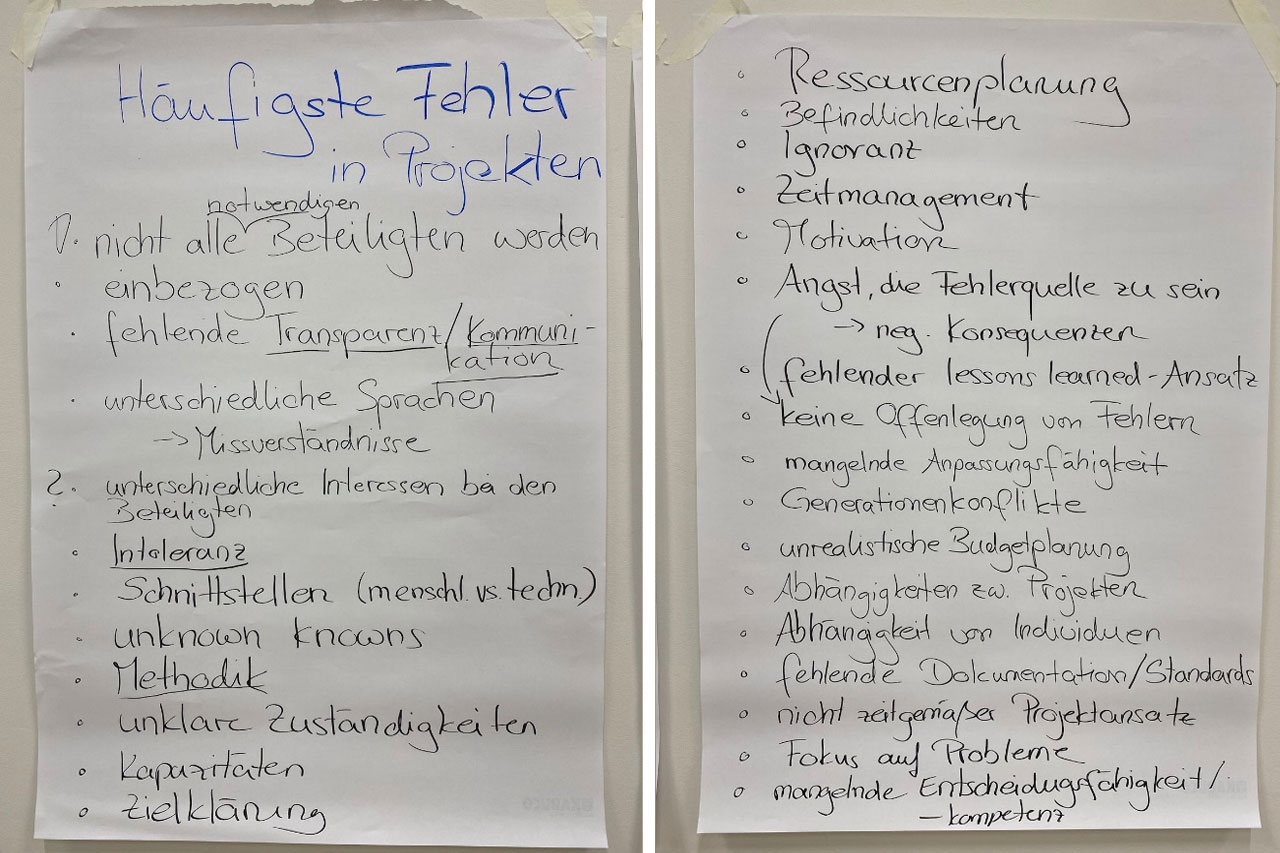 Häufigste Fehler
in Projekten
notwendigen
1. nicht alle Beteiligten werden
• einbezogen
• fehlende Transparenz/Kommuni-
kation
• unterschiedliche Sprachen
→ Missverständnisse
2. unterschiedliche Interessen bei den
Beteiligten
• Intoleranz
• Schnittstellen (menschl. vs. techn.)
• unknown knowns
• Methodik
• unklare Zuständigkeiten
• Kapazitäten
• Zielklärung
• Ressourcenplanung
• Befindlichkeiten
• Ignoranz
• Zeitmanagement
• Motivation
• Angst, die Fehlerquelle zu sein
→ neg. Konsequenzen
• fehlender lessons learned-Ansatz
• keine Offenlegung von Fehlern
• mangelnde Anpassungsfähigkeit
• Generationenkonflikte
• unrealistische Budgetplanung
• Abhängigkeiten zw. Projekten
• Abhängigkeit von Individuen
• fehlende Dokumentation/Standards
• nicht zeitgemäßer Projektansatz
• Fokus auf Probleme
• mangelnde Entscheidugsfähigkeit/
-kompetenz